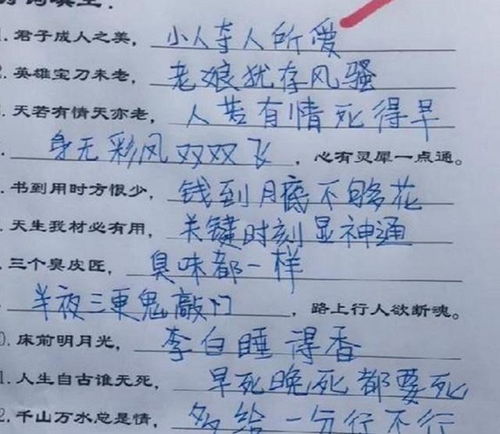 1. 君子成人之美，小人夺人所爱
2. 英雄宝刀未老，老娘犹存风骚
3. 天若有情天亦老，人若有情死得早
身无彩风双双飞，心有灵犀一点通。
. 书到用时方恨少，钱到月底不够花
. 天生我材必有用，关键时刻显神通
. 三个臭皮匠，臭味都一样
半夜三更鬼敲门，路上行人欲断魂。
0. 床前明月光，李白睡得香
1. 人生自古谁无死，早死晚死都要死
2. 千山万水总是情，多给一分行不行